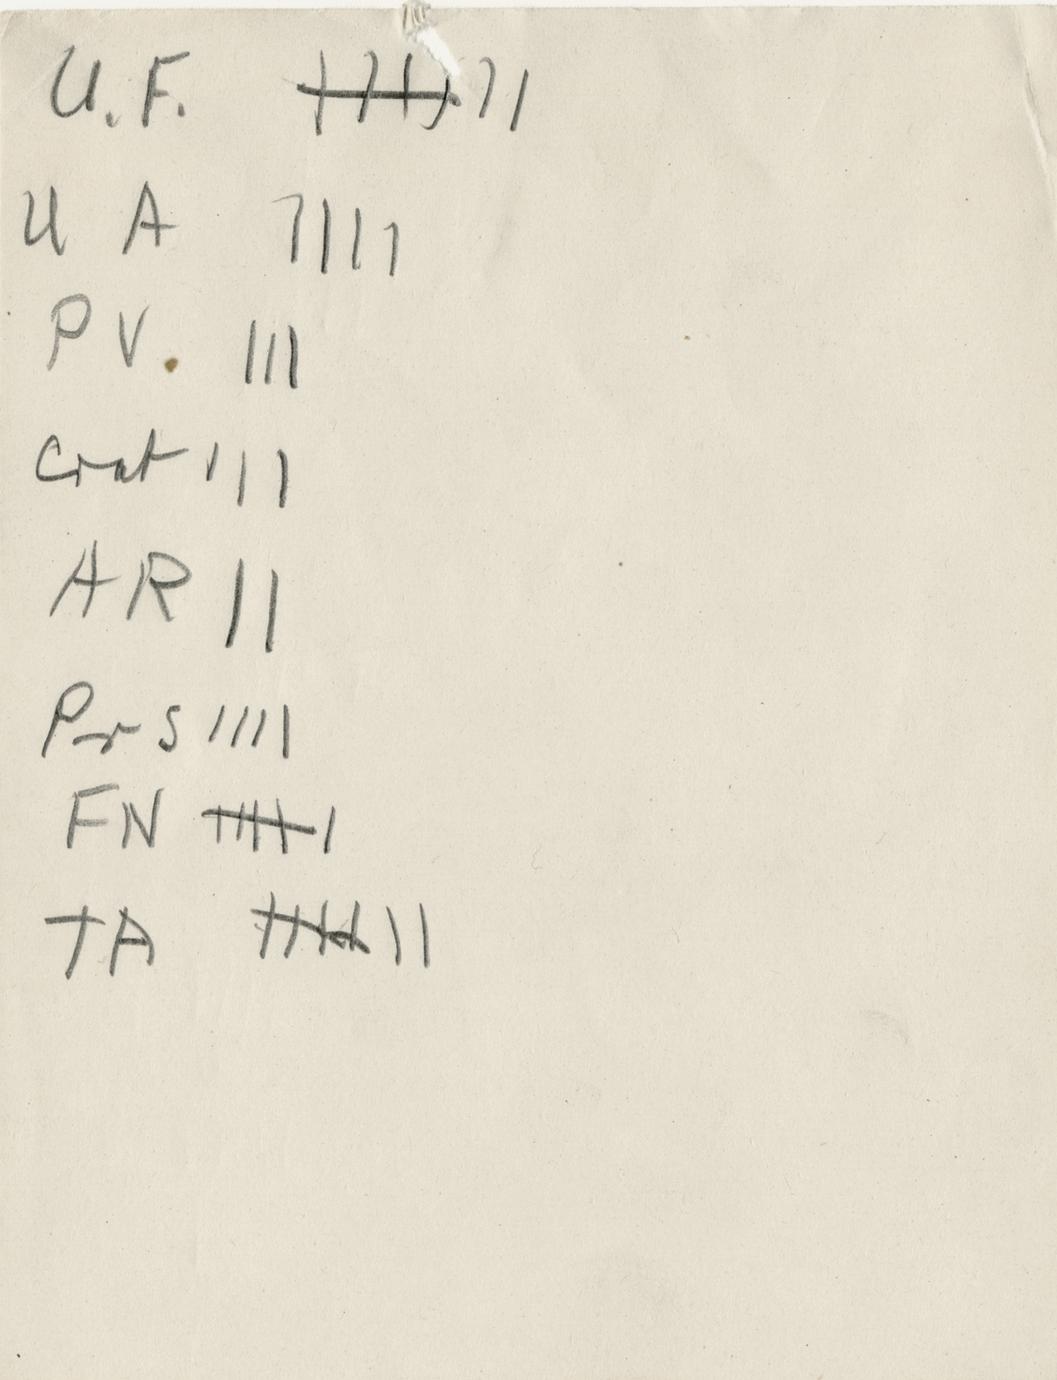 U.F. 卌 ||
U A ||||
P V. |||
Crat |||
A R ||
Pr S ||||
F N 卌 |
T A 卌 ||